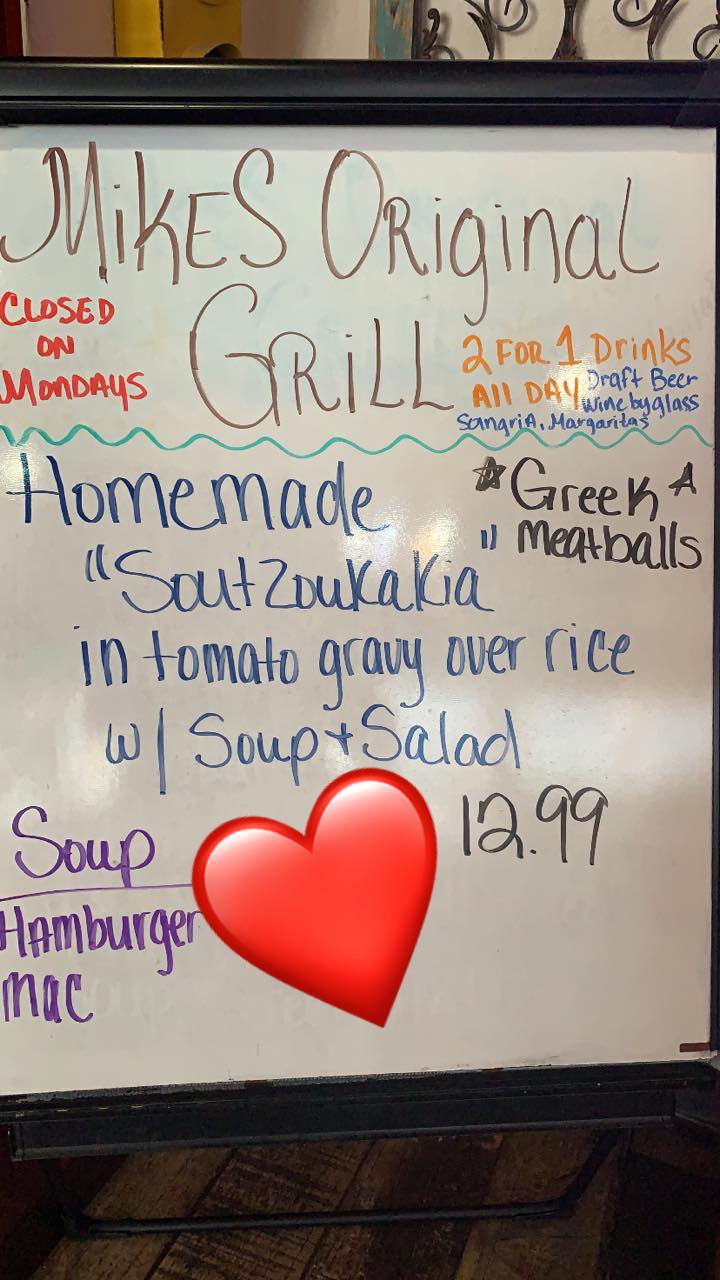 MikES ORiginal
GRiLL
CLOSED
ON
MONDAYS
2 FOR 1 Drinks
All DAY
Draft Beer
wine by glass
SangriA, Margaritas
Homemade
☆ Greek ☆
" Meatballs
"Soutzoukakia
in tomato gravy over rice
w/ Soup + Salad
12.99
Soup
HAmburger
mac